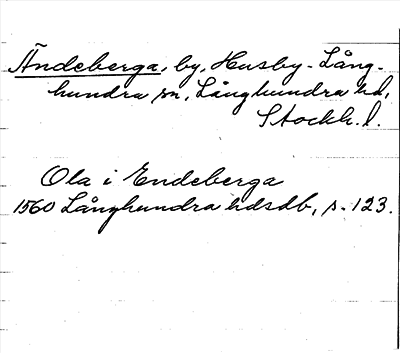 Ändeberga, by, Husby-Lång-
hundra sn, Långhundra hd,
Stockh. l.
Ola i Endeberga
1560 Långhundra hdsdb, s. 123.